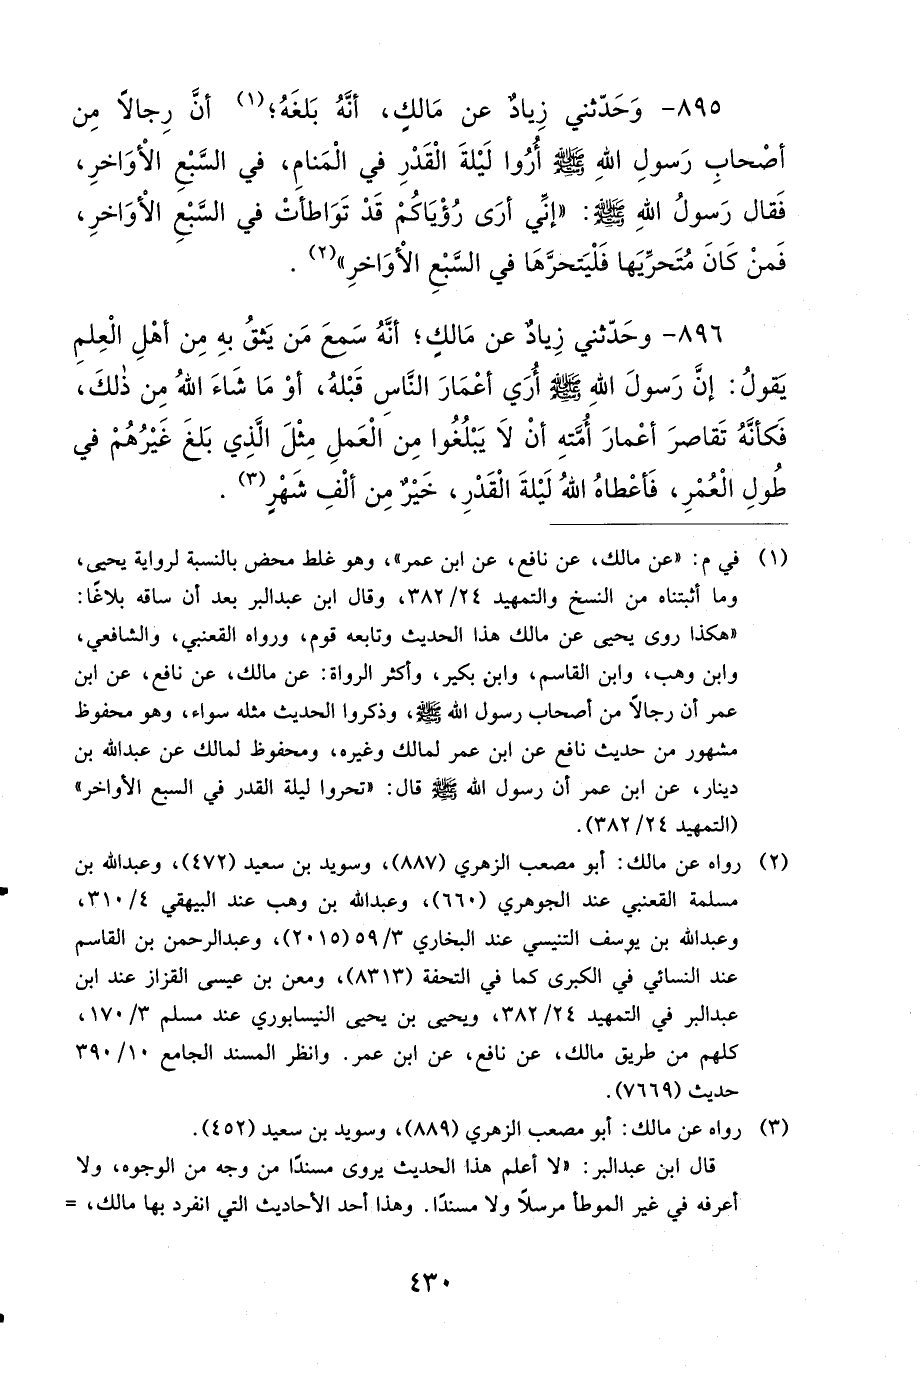 ٨٩٥- وَحَدّثني زِيادٌ عن مَالكٍ، أنَّهُ بَلغَهُ؛(١) أنَّ رِجالاً مِن
أصْحابِ رَسولِ اللهِ ﷺ أُرُوا لَيْلةَ الْقَدْرِ في الْمَنامِ، في السَّبْعِ الْأوَاخرِ،
فَقال رَسولُ اللهِ ﷺ: «إنِّي أرَى رُؤْيَاكُمْ قَدْ تَوَاطأتْ في السَّبْعِ الْأوَاخرِ،
فَمنْ كَانَ مُتَحرِّيَها فَلْيَتحرَّهَا في السَّبْعِ الْأوَاخرِ»(٢).
٨٩٦- وحَدّثني زِيادٌ عن مَالكٍ؛ أنَّهُ سَمِعَ مَن يَثقُ بهِ مِن أهْلِ الْعِلمِ
يَقولُ: إنَّ رَسولَ اللهِ ﷺ أُرَي أعْمَارَ النَّاسِ قَبْلهُ، أوْ مَا شَاءَ اللهُ مِن ذٰلكَ،
فَكأنَّهُ تَقاصرَ أعْمارَ أُمَّتهِ أنْ لَا يَبْلُغُوا مِن الْعَملِ مِثْلَ الَّذِي بَلغَ غَيْرُهُمْ في
طُولِ الْعُمْرِ، فَأعْطاهُ اللهُ لَيْلةَ الْقَدْرِ، خَيْرٌ مِن ألْفِ شَهْرٍ(٣).
(١) في م: «عن مالك، عن نافع، عن ابن عمر»، وهو غلط محض بالنسبة لرواية يحيى،
وما أثبتناه من النسخ والتمهيد ٢٤/ ٣٨٢، وقال ابن عبدالبر بعد أن ساقه بلاغًا:
«هكذا روى يحيى عن مالك هذا الحديث وتابعه قوم، ورواه القعنبي، والشافعي،
وابن وهب، وابن القاسم، وابن بكير، وأكثر الرواة: عن مالك، عن نافع، عن ابن
عمر أن رجالاً من أصحاب رسول الله ﷺ، وذكروا الحديث مثله سواء، وهو محفوظ
مشهور من حديث نافع عن ابن عمر لمالك وغيره، ومحفوظ لمالك عن عبدالله بن
دينار، عن ابن عمر أن رسول الله ﷺ قال: «تحروا ليلة القدر في السبع الأواخر»
(التمهيد ٢٤/ ٣٨٢).
(٢) رواه عن مالك: أبو مصعب الزهري (٨٨٧)، وسويد بن سعيد (٤٧٢)، وعبدالله بن
مسلمة القعنبي عند الجوهري (٦٦٠)، وعبدالله بن وهب عند البيهقي ٤/ ٣١٠،
وعبدالله بن يوسف التنيسي عند البخاري ٣/ ٥٩ (٢٠١٥)، وعبدالرحمن بن القاسم
عند النسائي في الكبرى كما في التحفة (٨٣١٣)، ومعن بن عيسى القزاز عند ابن
عبدالبر في التمهيد ٢٤/ ٣٨٢، ويحيى بن يحيى النيسابوري عند مسلم ٣/ ١٧٠،
كلهم من طريق مالك، عن نافع، عن ابن عمر. وانظر المسند الجامع ١٠/ ٣٩٠
حديث (٧٦٦٩).
(٣) رواه عن مالك: أبو مصعب الزهري (٨٨٩)، وسويد بن سعيد (٤٥٢).
قال ابن عبدالبر: «لا أعلم هذا الحديث يروى مسندًا من وجه من الوجوه، ولا
أعرفه في غير الموطأ مرسلاً ولا مسندًا. وهذا أحد الأحاديث التي انفرد بها مالك، =
٤٣٠